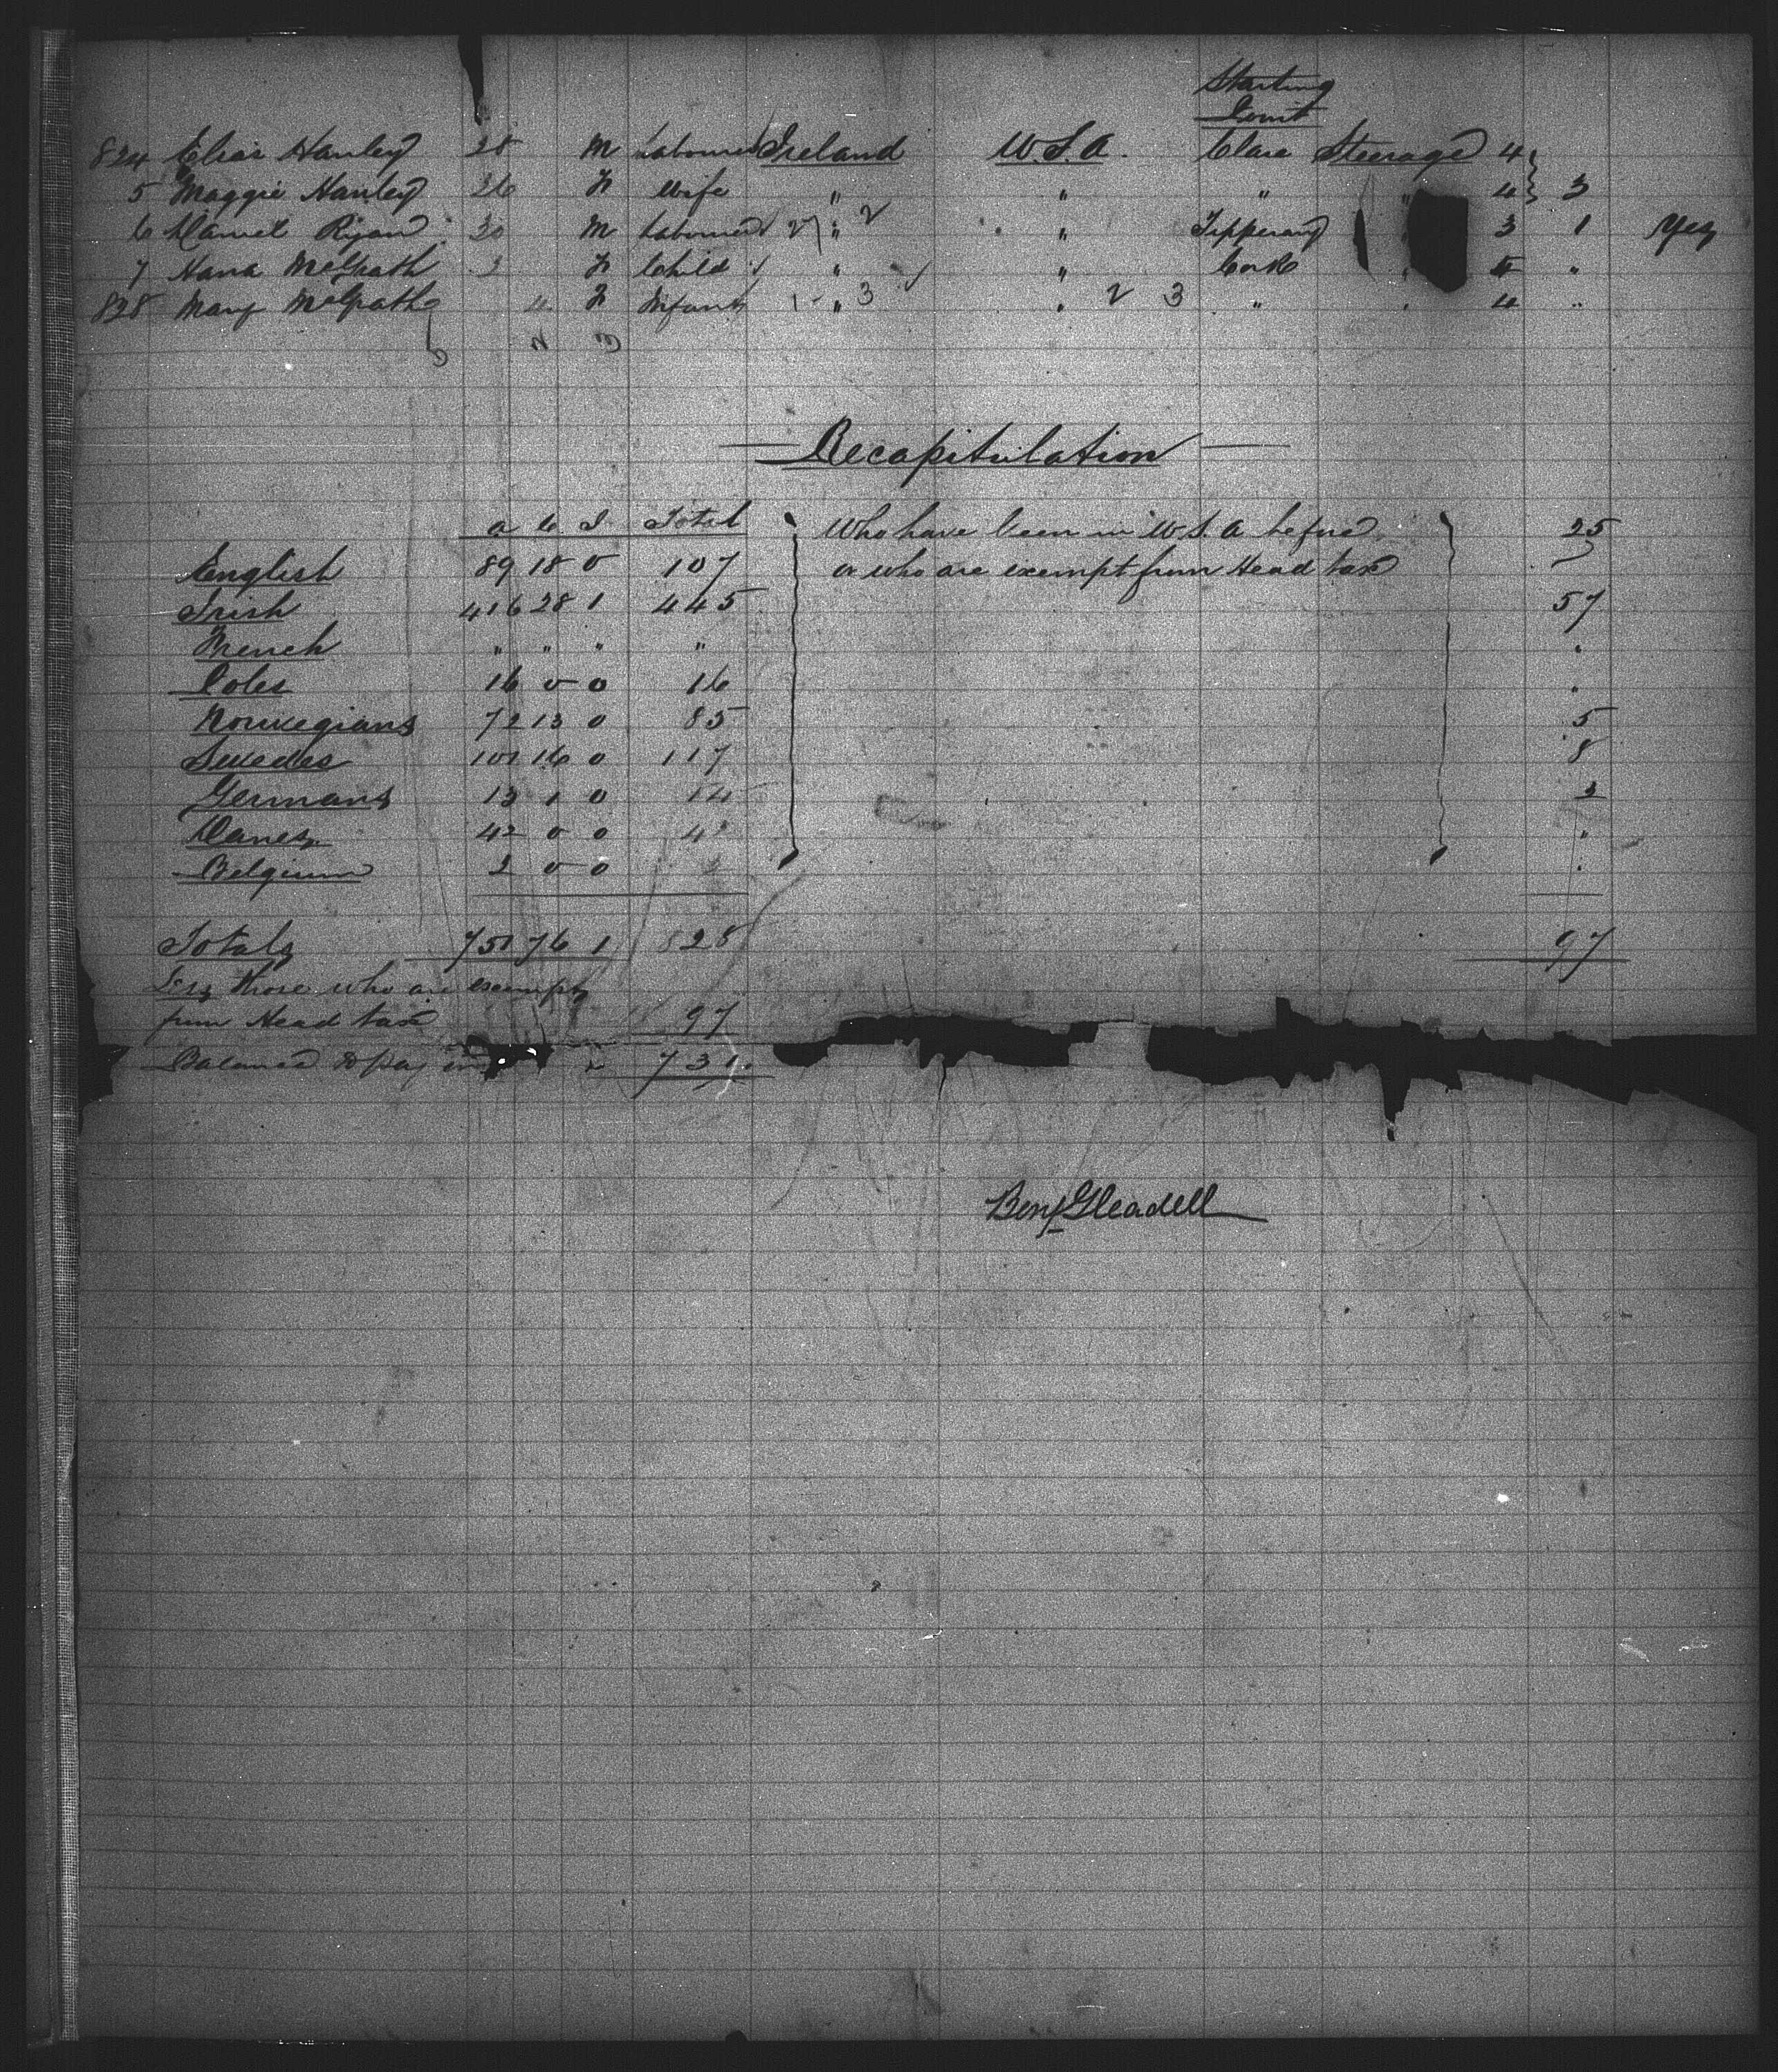 Starting
Point
824 Elias Hanley 28 M Labourer Ireland U.S.A. Clare Steerage 4
5 Maggie Hanley 26 F Wife " " " " 4 3
6 Daniel Ryan 30 M Labourer 27 " 2 " Tipperary 3 1 Yes
7 Hana McGrath 3 F Child " " Cork " "
828 Mary McGrath F Infant " 3 " 2 3 " " 4 "
Recapitulation
a c I Total Who have been in U.S.A before 25
English 89 18 0 107 or who are exempt from Head tax
Irish 416 28 1 445 57
French " " " " "
Poles 16 0 0 16 "
Norwegians 72 13 0 85 5
Swedes 101 16 0 117 8
Germans 13 1 0 14
Danes 42 0 0 42 "
Belgium 2 0 0 2 "
Totals 751 76 1 828 97
Less those who are exempt
from Head tax 97
Balance to pay 731.
Benj Gleadell